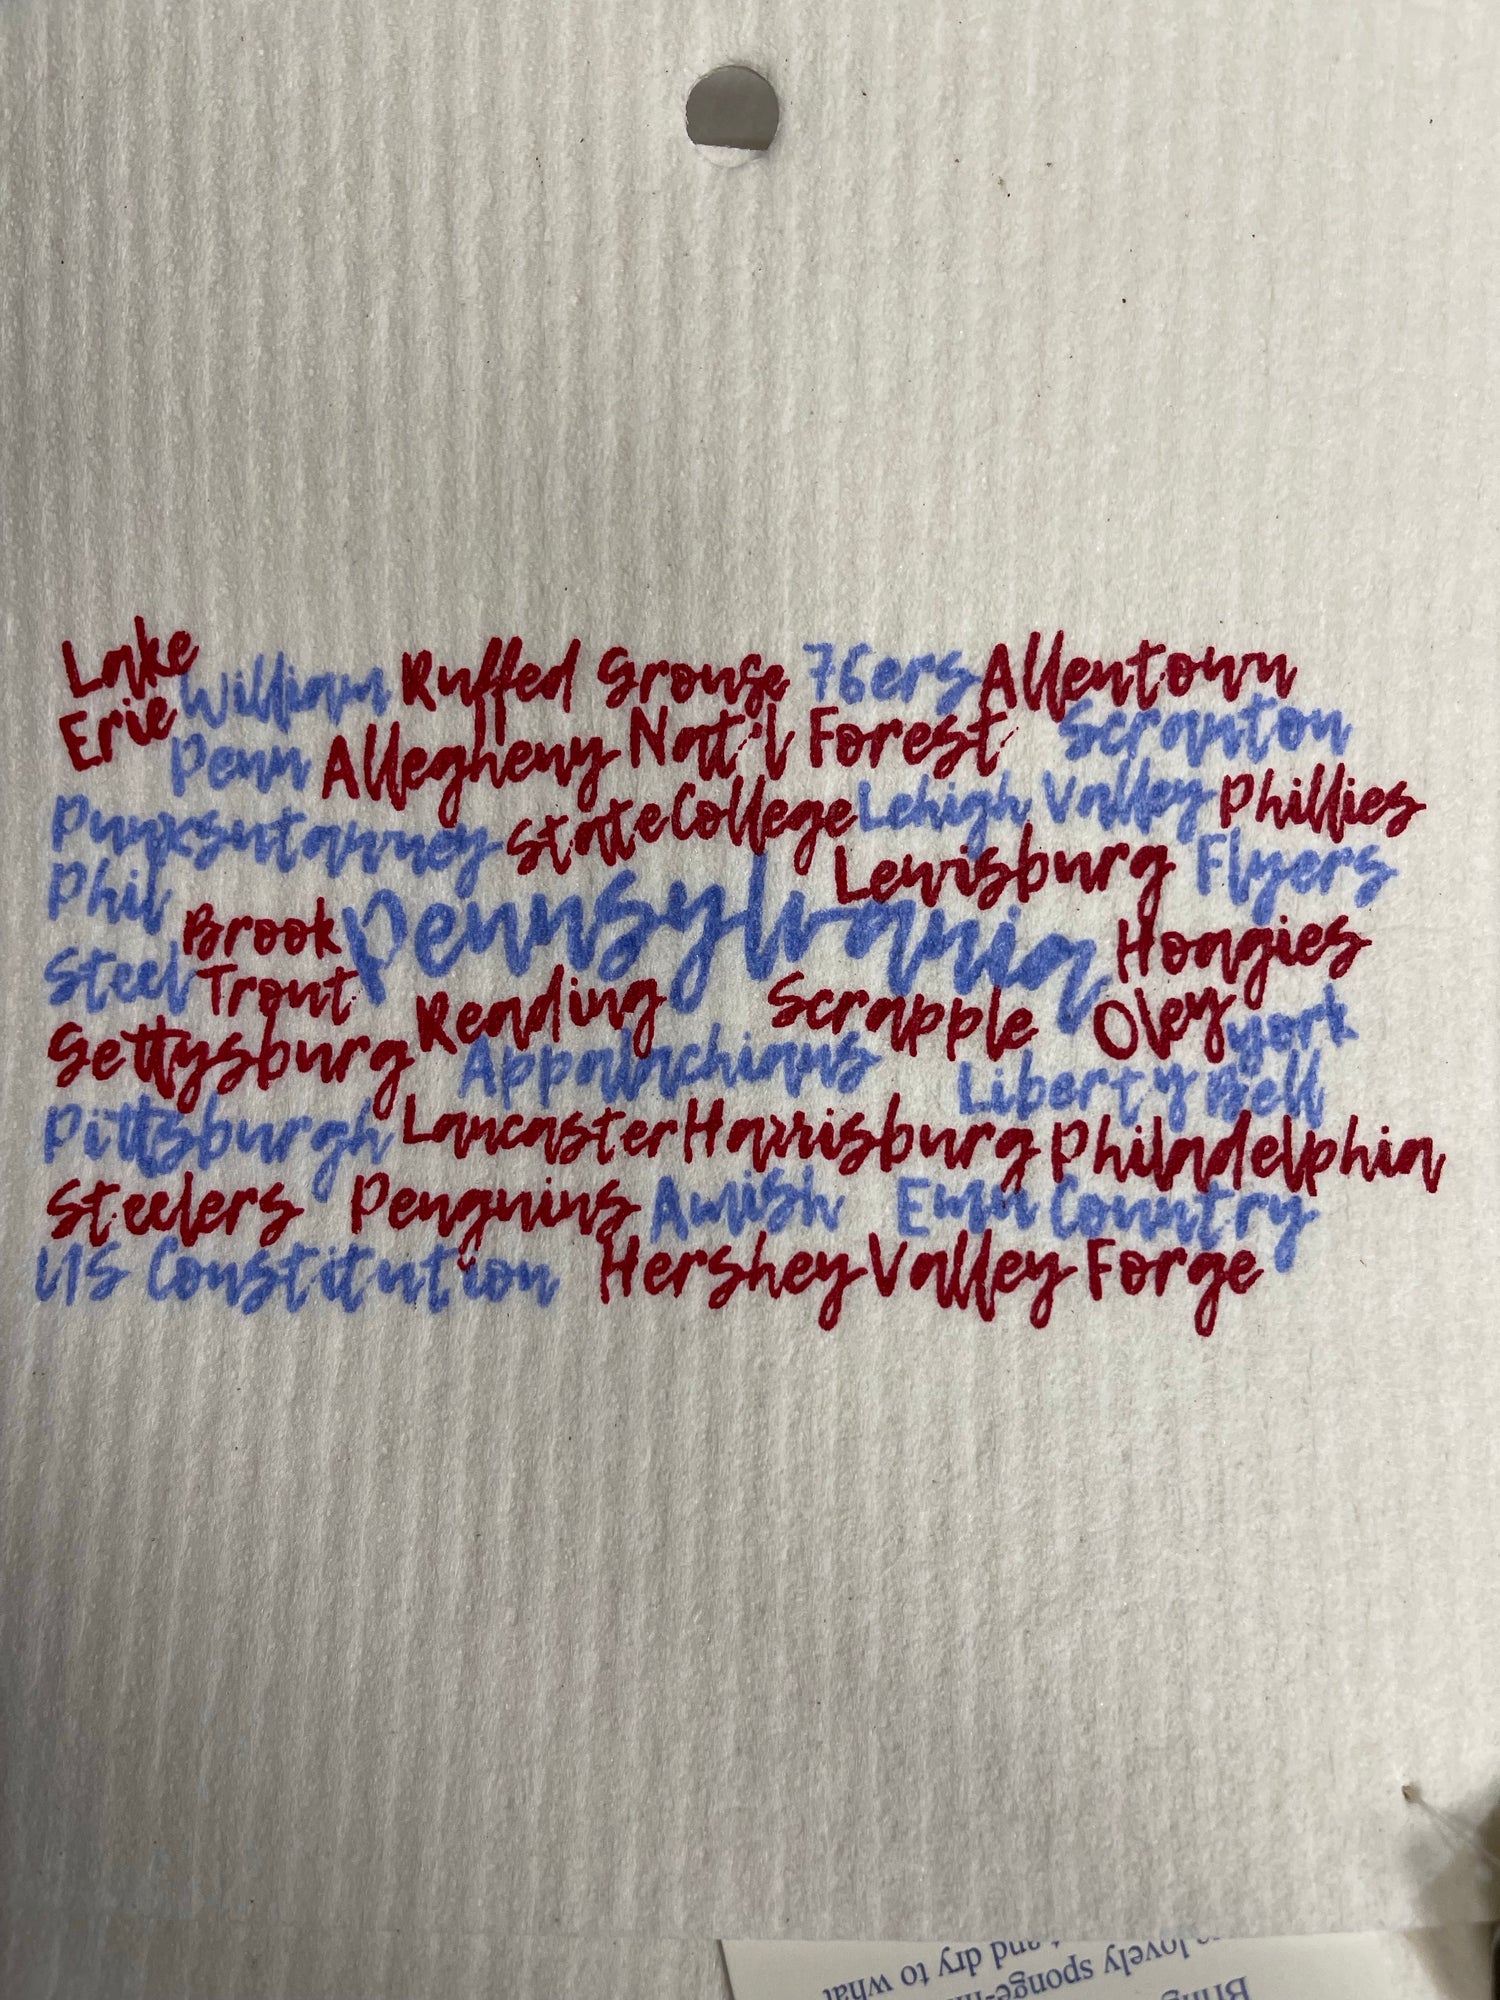 Lake
William Ruffed Grouse 76ers Allentown
Erie
Penn Allegheny Nat'l Forest Scranton
Punxsutawney State College Lehigh Valley Phillies
Phil Lewisburg Flyers
Brook Pennsylvania Hoagies
Steel Trout Reading Scrapple Oley York
Gettysburg Appalachians Liberty Bell
Pittsburgh Lancaster Harrisburg Philadelphia
Steelers Penguins Amish Emu Country
US Constitution Hershey Valley Forge
lovely sponge-
and dry to what